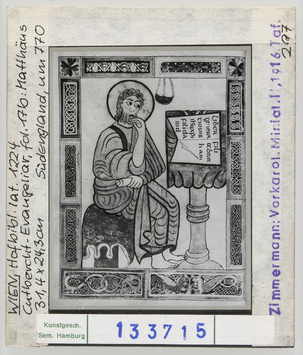 WIEN, Hofbibl. lat. 1224
Cutbercht-Evangeliar, fol. 17b: Matthäus
31,4 x 24,3cm Südengland, um 770
Zimmermann: Vorkarol. Miniat. 1', 1916, Taf.
297
Kunstgesch.
Sem. Hamburg
133715